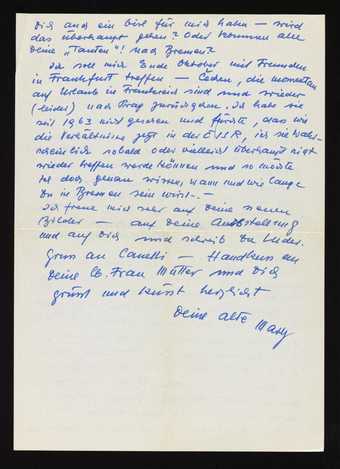 Dich auch ein bisl für mich haben – wird
das überhaupt gehen? Oder kommen alle
Deine „Tanten“! nach Bremen?
Ich soll mich Ende Oktober mit Freunden
in Frankfurt treffen – Cechen, die momentan
auf Urlaub in Frankreich sind und wieder
(leider) nach Prag zurückgehen. Ich habe sie
seit 1963 nicht gesehen und fürchte, dass wie
die Verhältnisse jetzt in der ČSSR, ich sie wahr-
scheinlich sobald oder vielleicht überhaupt nicht
wieder treffen werde können und so möchte
ich doch genau wissen, wann und wie lange
Du in Bremen sein wirst. –
Ich freue mich sehr auf Deine neuen
Bilder – auf Deine Ausstellung
und auf Dich und schreib Du
Gruss an – Handkuss an
Deine lb. Frau Mutter und Dich
grüsst und küsst herzlichst
Deine alte Mary